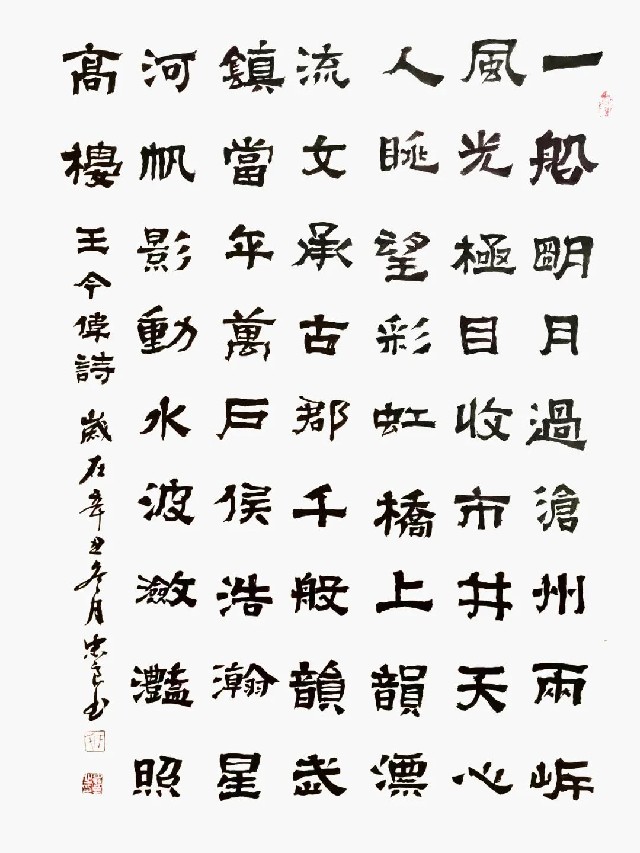 一船明月過滄州兩岍
風光極目收市井天心
人眺望彩虹橋上韻漂
流女承古郡千般韻武
鎮當年萬戶侯浩瀚星
河帆影動水波瀲灩照
高樓
王今偉詩 歲在辛丑冬月忠良書